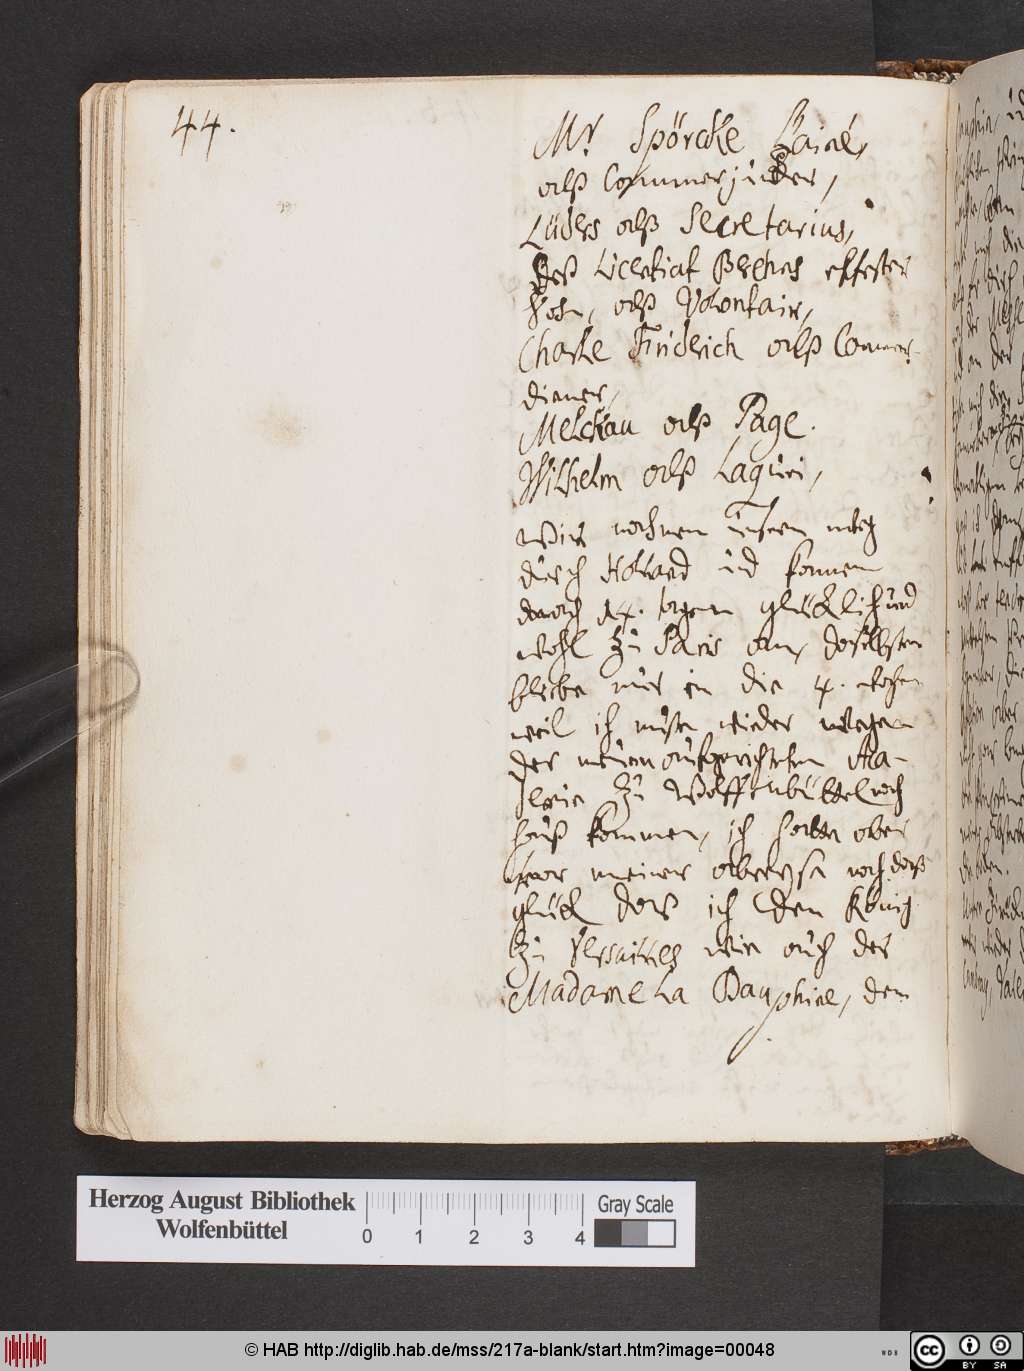 44.
Mr Spörcke
alß Commerjuncker,
Lüders alß Secretarius,
Deß Licentiat Behres eltester
Sohn, alß Volontair,
Charle Fridrich alß Commer-
diener,
Melckau alß Page.
Wilhelm alß Laquei,
Wir nahmen unsern weg
durch Holland und kamen
danach 14. tagen glücklich und
wohl zu Paris an, daselbsten
bliebe nur in die 4. wochen
weil ich muste wieder wegen
der neuen aufgerichteten Aca-
demie zu Wolffenbüttel nach
hauß kommen, ich hatte aber
vor meiner abreyse noch daß
glück daß ich den König
zu Versailles wie auch der
Madame la Dauphine, dem
Herzog August Bibliothek
Wolfenbüttel
0 1 2 3 4
Gray Scale
© HAB http://diglib.hab.de/mss/217a-blank/start.htm?image=00048
WDB
cc BY SA